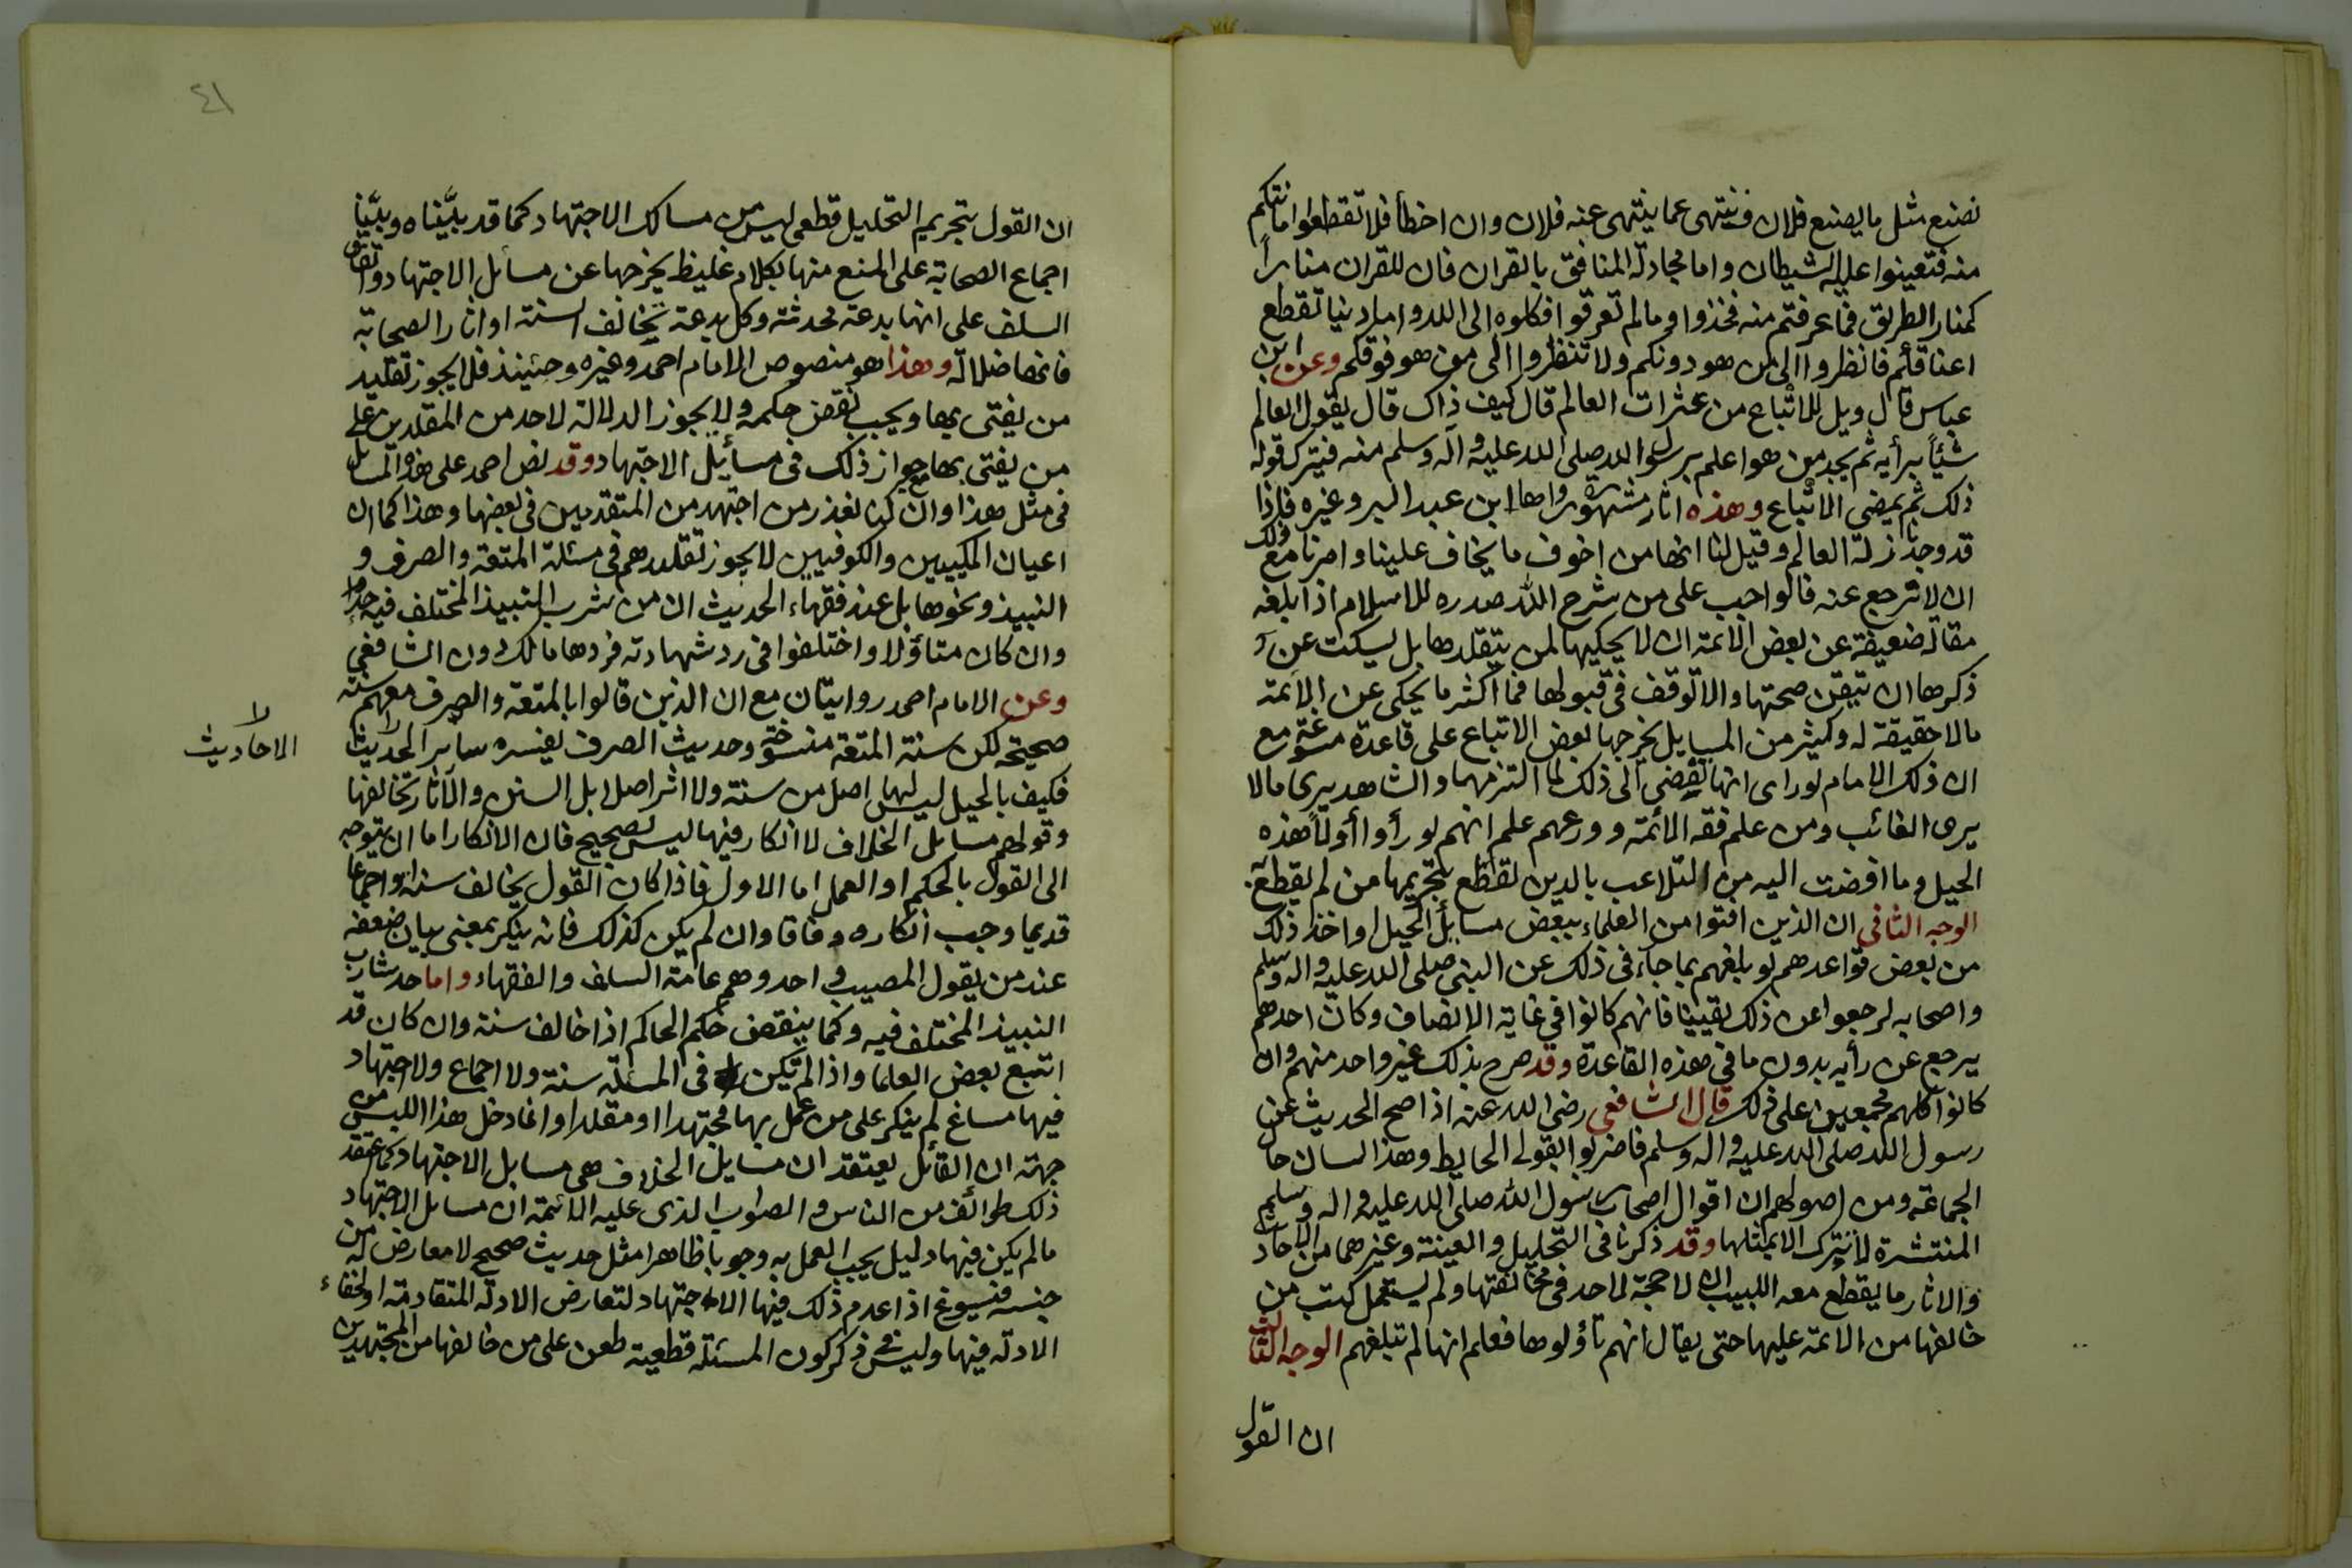 نصنع مثل ما يصنع فلان وننتهى عما ينتهى عنه فلان وان اخطأ فلا تقطعوا امانتكم
منه فتعينوا عليه الشيطان واما مجادلة المنافق بالقران فان للقران منارا
كمنار الطريق فما عرفتم منه فخذوا وما لم تعرفوا فكلوه الى الله واما دنيا تقطع
اعناقكم فانظروا الى من هو دونكم ولا تنظروا الى من هو فوقكم وعن ابن
عباس قال ويل للاتباع من عثرات العالم قال كيف ذاك قال يقول العالم
شيئاً برأيه ثم يجد من هو اعلم برسول الله صلى الله عليه وآله وسلم منه فيترك قوله
ذلك ثم يمضى الاتباع وهذه اثار مشهورة رواها ابن عبد البر وغيره فاذا
قد وجدنا زلة العالم وقيل لنا انها من اخوف ما يخاف علينا وامرنا مع ذلك
ان لا نرجع عنه فالواجب على من شرح الله صدره للاسلام اذا بلغه
مقالة ضعيفة عن بعض الائمة ان لا يحكيها لمن يتقلدها بل يسكت عن
ذكرها ان تيقن صحتها والا توقف فى قبولها فما اكثر ما يحكى عن الائمة
مالا حقيقة له وكثير من المسايل يخرجها بعض الاتباع على قاعدة متبوعة مع
ان ذلك الامام لو راى انها تفضى الى ذلك لما التزمها والشاهد يرى مالا
يرى الغائب ومن علم فقه الائمة وورعهم علم انهم لو رأوا هذه
الحيل وما افضت اليه من التلاعب بالدين لقطع بتحريمها من لم يقطع
الوجه الثانى ان الذين افتوا من العلماء ببعض مسايل الحيل او اخذ ذلك
من بعض قواعدهم لو بلغهم بما جاء فى ذلك عن النبى صلى الله عليه واله وسلم
واصحابه لرجعوا عن ذلك يقينا فانهم كانوا فى غاية الانصاف وكان احدهم
يرجع عن رأيه بدون ما فى هذه القاعدة وقد صرح بذلك غير واحد منهم وان
كانوا كلهم مجمعين على ذلك قال الشافعى رضى الله عنه اذا صح الحديث عن
رسول الله صلى الله عليه واله وسلم فاضربوا بقولى الحايط وهذا لسان حال
الجماعة ومن اصولهم ان اقوال اصحاب رسول الله صلى الله عليه واله وسلم
المنتشرة لا تترك الا بمثلها وقد ذكرنا فى التحليل والعينة وغيرهما من الاحاديث
والاثار ما يقطع معه اللبيب ان لا حجة لاحد فى مخالفتها ولم يشتمل كتب من
خالفها من الائمة عليها حتى يقال انهم تأولوها فعلم انها لم تبلغهم الوجه الثالث
ان القول
٤١
ان القول بتحريم التحليل قطعى ليس من مسالك الاجتهاد كما قد بيّناه وبيّنا
اجماع الصحابة على المنع منها بكلام غليظ يخرجها عن مسائل الاجتهاد واتفاق
السلف على انها بدعة محدثة وكل بدعة تخالف السنة او اثار الصحابة
فانها ضلالة وهذا هو منصوص الامام احمد وغيره وحينئذ فلا يجوز تقليد
من يفتى بها ويجب نقض حكمه ولا يجوز الدلالة لاحد من المقلدين على
من يفتى بها مع جواز ذلك فى مسائل الاجتهاد وقد نص احمد على هذه المسايل
فى مثل هذا وان كنا نعذر من اجتهد من المتقدمين فى بعضها وهذا كما ان
اعيان المكيين والكوفيين لا يجوز تقليدهم فى مسئلة المتعة والصرف و
النبيذ ونحوها بل عند فقهاء الحديث ان من شرب النبيذ المختلف فيه حد
وان كان متاؤلا واختلفوا فى رد شهادته فردها مالك دون الشافعى
وعن الامام احمد روايتان مع ان الذين قالوا بالمتعة والصرف معهم سنة
صحيحة لكن سنة المتعة منسوخة وحديث الصرف يفسره سائر الحديث
الاحاديث
فكيف بالحيل ليس لها اصل من سنة ولا اثر اصلا بل السنن والآثار تخالفها
وقولهم مسايل الخلاف لا انكار فيها ليس بصحيح فان الانكار اما ان يتوجه
الى القول بالحكم او العمل اما الاول فاذا كان القول يخالف سنة او اجماعا
قديما وجب انكاره وفاقا وان لم يكن كذلك فانه ينكر بمعنى بيان ضعفه
عند من يقول المصيب واحد وهم عامة السلف والفقهاء واما حد شارب
النبيذ المختلف فيه وكما ينقض حكم الحاكم اذا خالف سنة وان كان قد
اتبع بعض العلما واذا لم تكن فى المسئلة سنة ولا اجماع ولاجتهاد
فيها مساغ لم ينكر على من عمل بها مجتهدا او مقلدا وانما دخل هذا اللبس من
جهة ان القائل يعتقد ان مسايل الخلاف هى مسايل الاجتهاد كما اعتقد
ذلك طوائف من الناس والصواب الذى عليه الائمة ان مسايل الاجتهاد
مالم يكن فيها دليل يجب العمل به وجوبا ظاهرا مثل حديث صحيح لا معارض له من
جنسه فيسوغ اذا عدم ذلك فيها الاجتهاد لتعارض الادلة المتقادمة او لخفاء
الادلة فيها وليس فى ذكر كون المسئلة قطعية طعن على من خالفها من المجتهدين